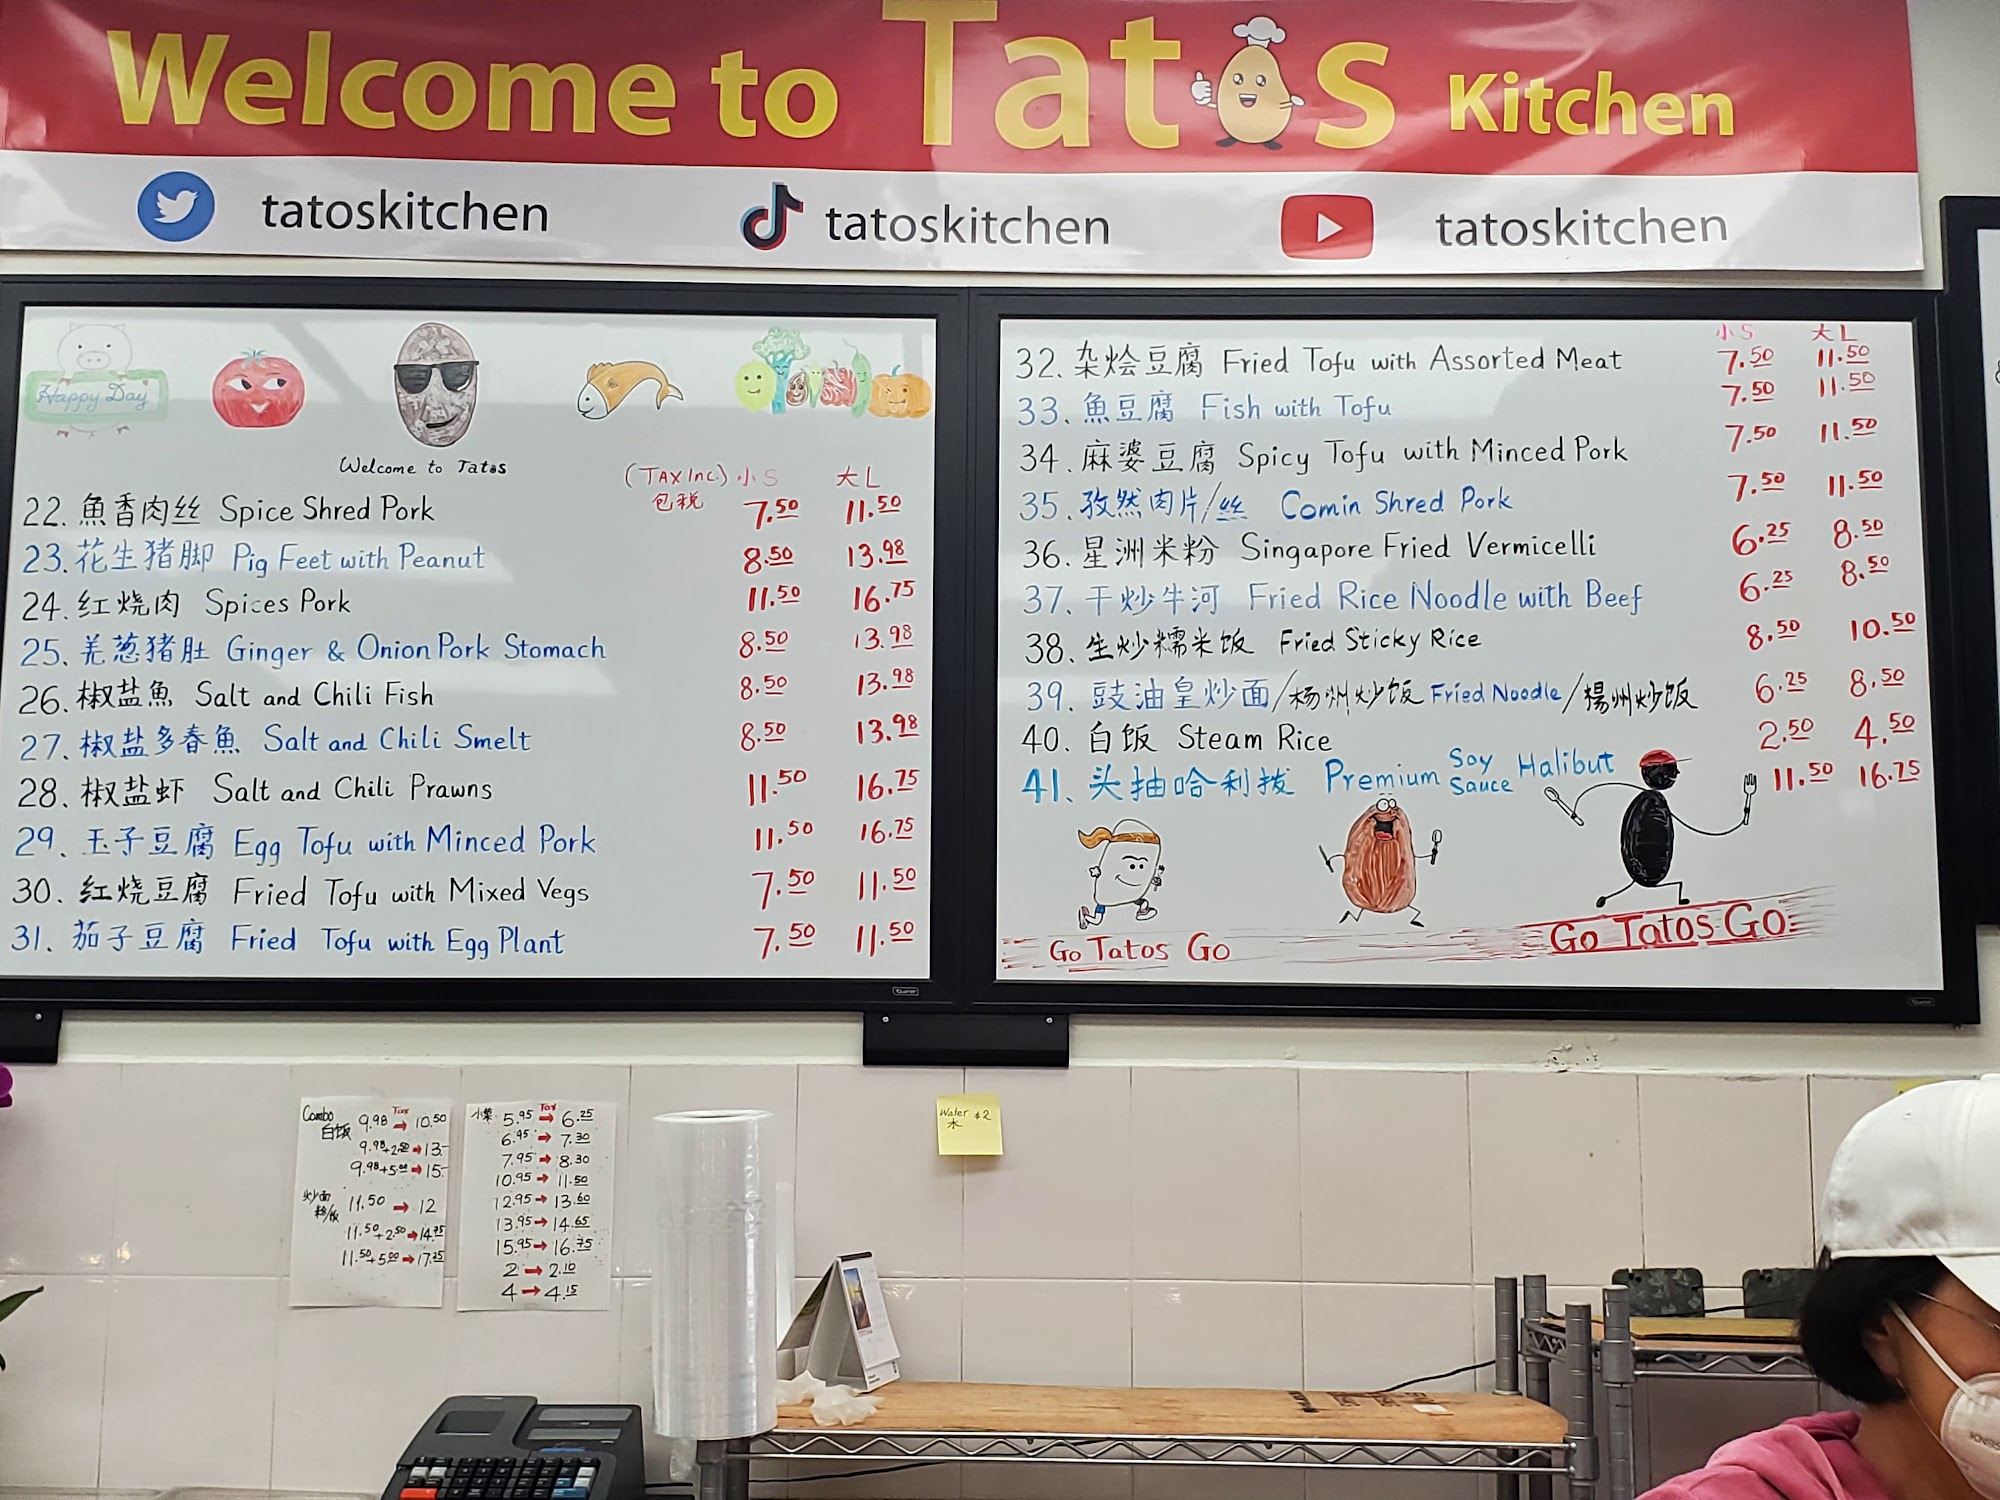 Welcome to Tatos Kitchen
tatoskitchen tatoskitchen tatoskitchen
Happy Day
Welcome to Tatos
(TAX Inc.) 小 S 大 L
包税
22. 魚香肉丝 Spice Shred Pork 7.50 11.50
23. 花生猪脚 Pig Feet with Peanut 8.50 13.98
24. 红烧肉 Spices Pork 11.50 16.75
25. 羌葱猪肚 Ginger & Onion Pork Stomach 8.50 13.98
26. 椒盐魚 Salt and Chili Fish 8.50 13.98
27. 椒盐多春魚 Salt and Chili Smelt 8.50 13.98
28. 椒盐虾 Salt and Chili Prawns 11.50 16.75
29. 玉子豆腐 Egg Tofu with Minced Pork 11.50 16.75
30. 红烧豆腐 Fried Tofu with Mixed Vegs 7.50 11.50
31. 茄子豆腐 Fried Tofu with Egg Plant 7.50 11.50
小 S 大 L
32. 杂烩豆腐 Fried Tofu with Assorted Meat 7.50 11.50
33. 魚豆腐 Fish with Tofu 7.50 11.50
34. 麻婆豆腐 Spicy Tofu with Minced Pork 7.50 11.50
35. 孜然肉片/丝 Comin Shred Pork 7.50 11.50
36. 星洲米粉 Singapore Fried Vermicelli 6.25 8.50
37. 干炒牛河 Fried Rice Noodle with Beef 6.25 8.50
38. 生炒糯米饭 Fried Sticky Rice 8.50 10.50
39. 豉油皇炒面/杨州炒饭 Fried Noodle/揚州炒饭 6.25 8.50
40. 白饭 Steam Rice 2.50 4.50
41. 头抽哈利拔 Premium Soy Sauce Halibut 11.50 16.75
Go Tatos Go
Go Tatos Go
Combo Tax
白饭 9.98 → 10.50
9.98+2.50 → 13.-
9.98+5.00 → 15.-
炒面
粉/饭 11.50 → 12
11.50+2.50 → 14.75
11.50+5.00 → 17.25
小菜 Tax
5.95 → 6.25
6.95 → 7.30
7.95 → 8.30
10.95 → 11.50
12.95 → 13.60
13.95 → 14.65
15.95 → 16.75
2 → 2.10
4 → 4.15
Water $2
水